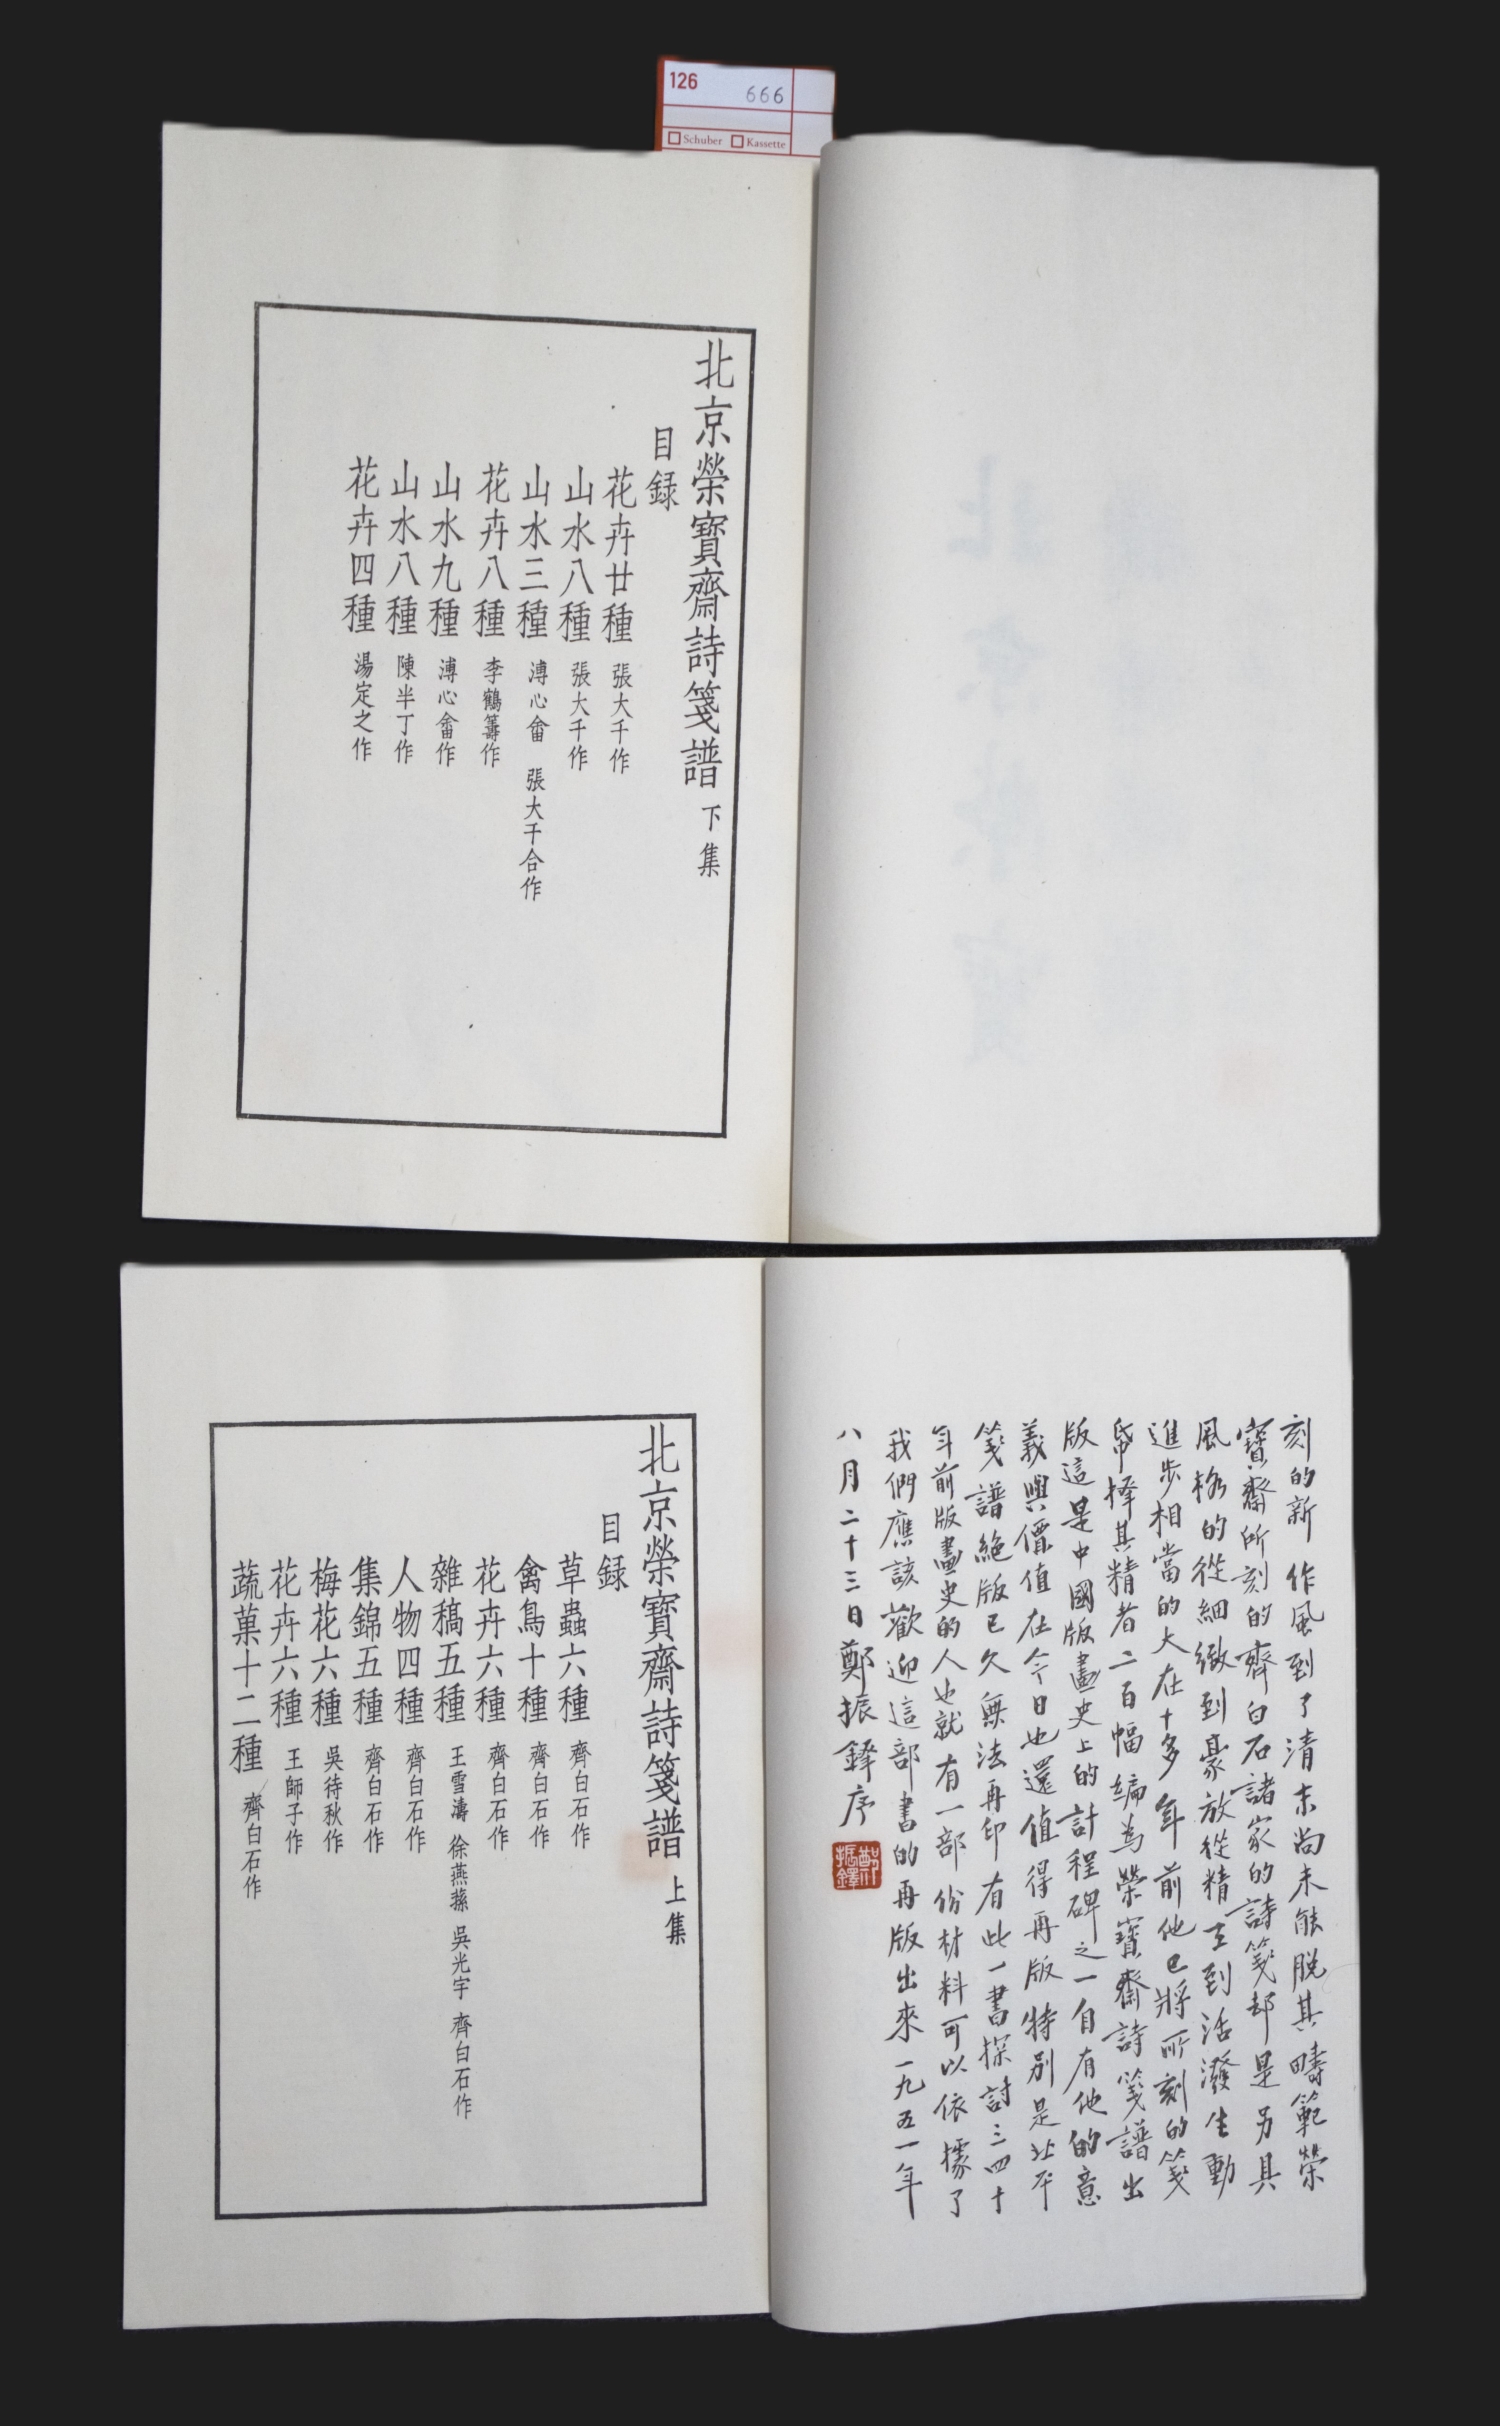 126
666
Schuber Kassette
北京榮寶齋詩箋譜 下集
目録
花卉廿種 張大千作
山水八種 張大千作
山水三種 溥心畬 張大千合作
花卉八種 李鶴籌作
山水九種 溥心畬作
山水八種 陳半丁作
花卉四種 湯定之作
刻的新作風到了清末尚未能脱其疇範榮
寶齋所刻的齊白石諸家的詩箋却是另具
風格的從細緻到豪放從精工到活潑生動
進步相當的大在十多年前他已將所刻的箋
帋擇其精者二百幅編為榮寶齋詩箋譜出
版這是中國版畫史上的計程碑之一自有他的意
義與價值在今日也還值得再版特别是北平
箋譜絶版已久無法再印有此一書探討三四十
年前版畫史的人也就有一部份材料可以依據了
我們應該歡迎這部書的再版出來一九五一年
八月二十三日鄭振鐸序
鄭振鐸
北京榮寶齋詩箋譜 上集
目録
草蟲六種 齊白石作
禽鳥十種 齊白石作
花卉六種 齊白石作
雜稿五種 王雪濤 徐燕蓀 吳光宇 齊白石作
人物四種 齊白石作
集錦五種 齊白石作
梅花六種 吳待秋作
花卉六種 王師子作
蔬菓十二種 齊白石作